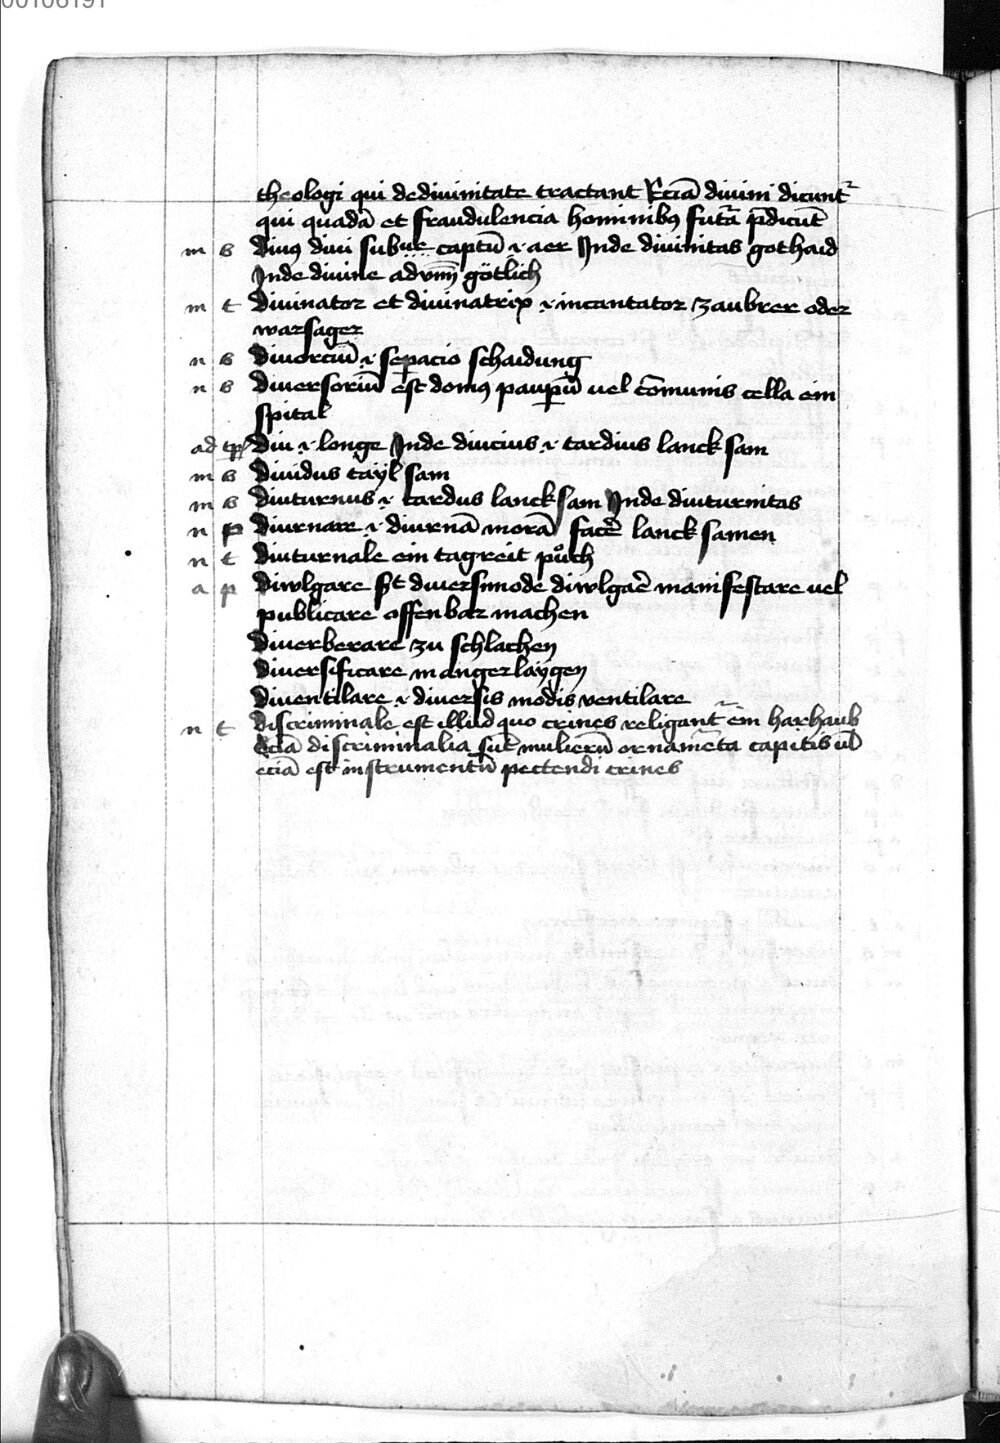 00106191
theologi qui de diuinitate tractant Eciā diuini dicunt᷑
qui quadā et fraudulencia hominibꝫ futᷓa p̄dicūt
m s Diuꝰ diui sub captū i aer Inde diuinitas gothaid
Inde diuine adv götlich
m t Diuinator et diuinatrix i incantator zaubrer oder
warsager
n s Diuorciū i sepacio schaidung
n s Diuersoriū est domꝰ paupū uel cōmunis cella ein
spital
ad Diu i longe Inde diucius i tardius lanck sam
m s Diuidus tayl sam
m s Diuturnus i tardus lanck sam Inde diuturnitas
n p Diurnare i diurnā morā facē lanck samen
n t Diuturnale ein tagreit půch
a p Diwlgare diuersimode diwlgaē manifestare uel
publicare offenbar machen
Diuerberare zu schlachen
Diuersificare mangerlaygen
Diuentilare i diuersis modis ventilare
n t Discriminale est illud quo crines religant᷑ ein harhaub
Eciā discriminalia sūt mulierū ornamēta capitis ul̄
eciā est instrumentū pectendi crines